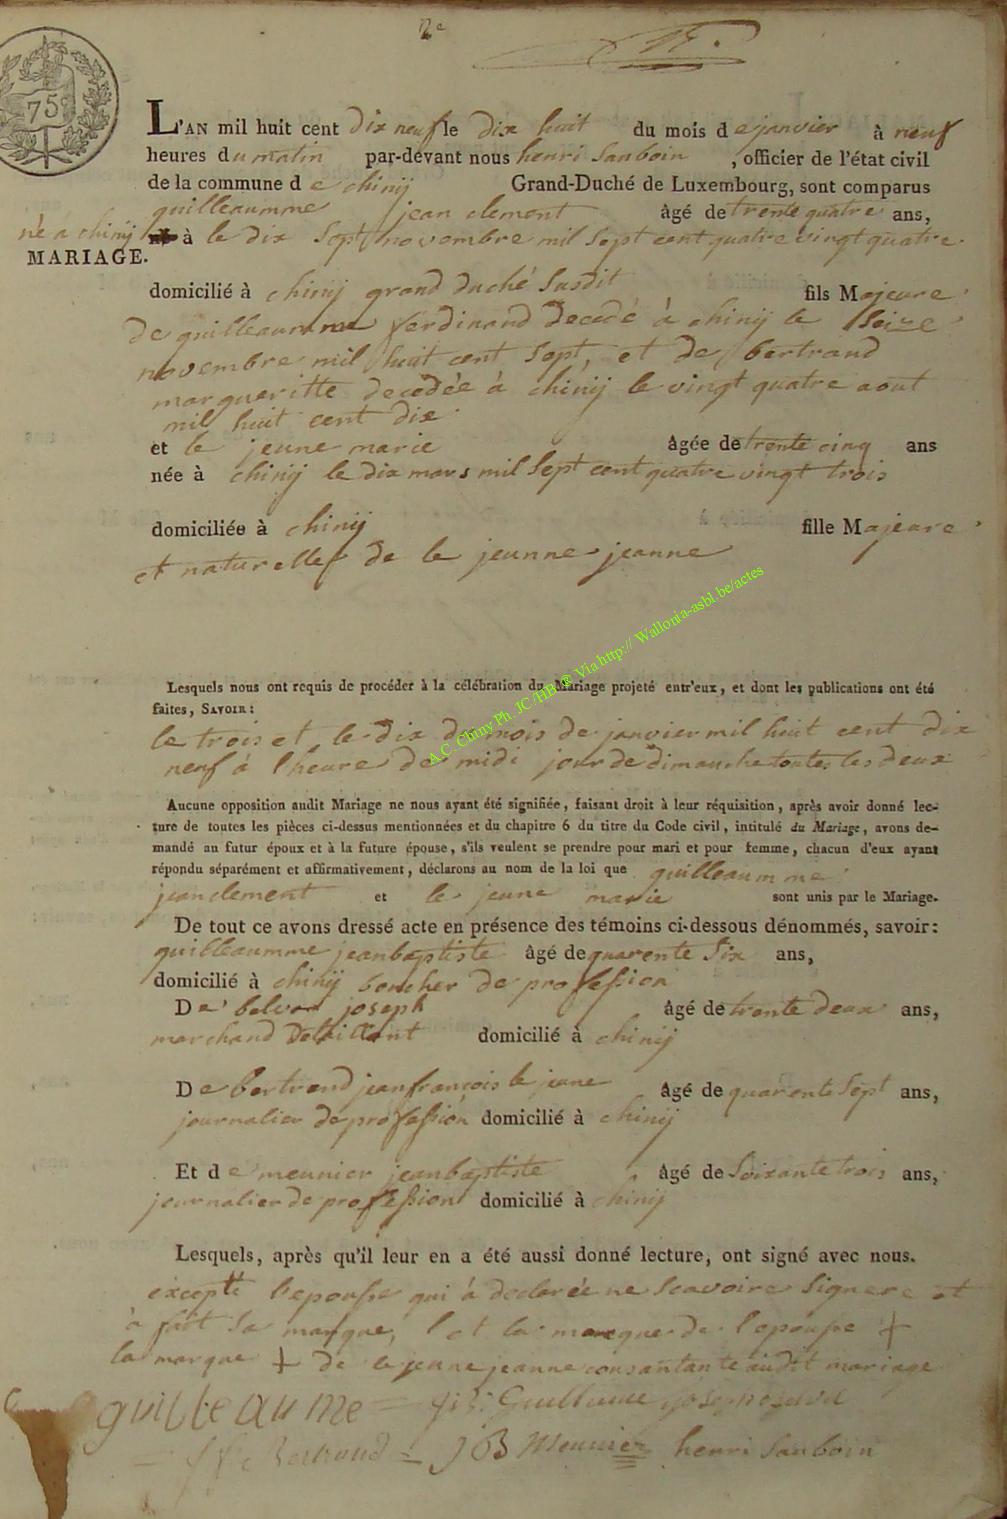 2e
75
L'AN mil huit cent dix neuf le dix huit du mois de janvier à neuf
heures du matin par-devant nous henri Sanboin, officier de l'état civil
de la commune de chinij Grand-Duché de Luxembourg, sont comparus
guilleaumme jean clement âgé de trente quatre ans,
né a chinij à le dix Sept novembre mil sept cent quatre vingt quatre.
MARIAGE.
domicilié à chinij grand duché Susdit fils Majeure
de guilleaumme ferdinand decedé à chinij le Seize
novembre mil huit cent sept, et de bertrand
margueritte decedée à chinij le vingt quatre aout
mil huit cent dix
et le jeune marie âgée de trente cinq ans
née à chinij le dix mars mil Sept cent quatre vingt trois
domiciliée à chinij fille Majeure
et naturelle de le jeunne jeanne
A.C. Chiny Ph. JC /HB ® Via http:// Wallonia-asbl.be/actes
Lesquels nous ont requis de procéder à la célébration du Mariage projeté entr'eux, et dont les publications ont été
faites, SAVOIR:
le trois et le dix du mois de janvier mil huit cent dix
neuf à l'heure de midi jour de dimanche toutes les deux
Aucune opposition audit Mariage ne nous ayant été signifiée, faisant droit à leur réquisition, après avoir donné lec-
ture de toutes les pièces ci-dessus mentionnées et du chapitre 6 du titre du Code civil, intitulé du Mariage, avons de-
mandé au futur époux et à la future épouse, s'ils veulent se prendre pour mari et pour femme, chacun d'eux ayant
répondu séparément et affirmativement, déclarons au nom de la loi que guilleaumme
jean clement et le jeune marie sont unis par le Mariage.
De tout ce avons dressé acte en présence des témoins ci-dessous dénommés, savoir:
guilleaumme jeanbaptiste âgé de quarente Six ans,
domicilié à chinij boucher de profession
De joseph âgé de trente deux ans,
marchand Detaillant domicilié à chinij
De Bertrand jeanfrancois le jeune âgé de quarente Sept ans,
journalier de profession domicilié à chinij
Et de meunier jeanbaptiste âgé de Soixante trois ans,
journalier de profession domicilié à chinij
Lesquels, après qu'il leur en a été aussi donné lecture, ont signé avec nous.
excepté l'epouse qui à declarée ne scavoire signere et
à fait Sa marque, la marque de l'epouse +
la marque + de le jeune jeanne consantante audit mariage
guilleaume Guillaume
Bertrand JB Meunier henri Sanboin